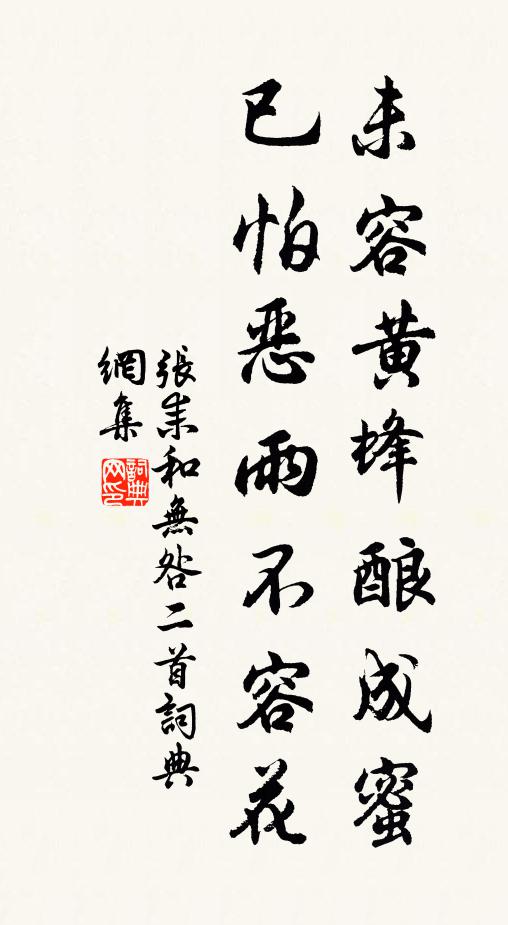 未容黄蜂酿成蜜
已怕恶雨不容花
張耒和無咎二首詞典
網集
詞典
网印